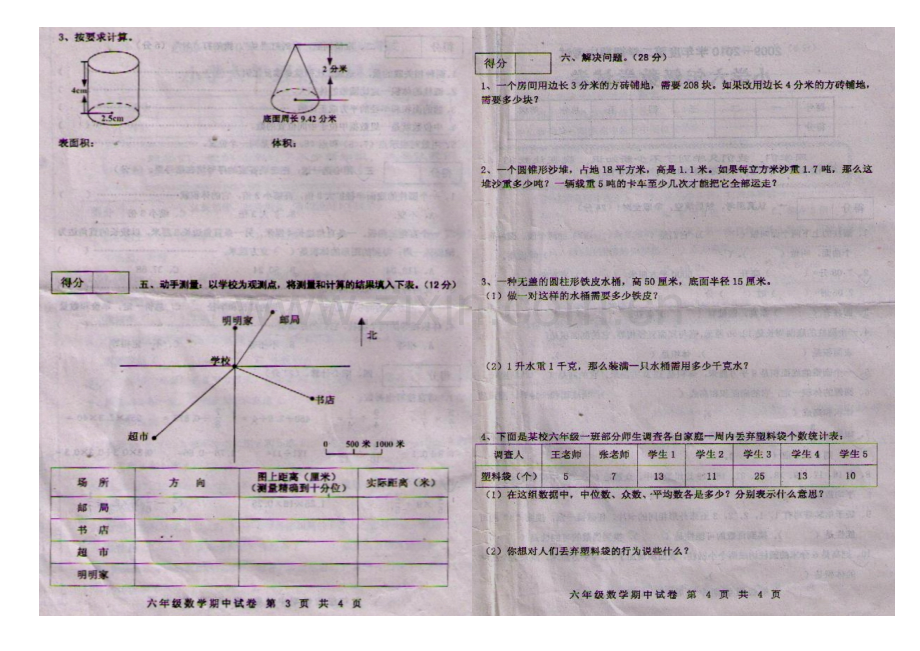 3、按要求计算。
4cm
2.5cm
2分米
底面周长9.42分米
表面积：
体积：
得分
五、动手测量：以学校为观测点，将测量和计算的结果填入下表。（12分）
明明家
邮局
北
学校
书店
超市
0 500米 1000米
场 所
方 向
图上距离（厘米）
（测量精确到十分位）
实际距离（米）
邮 局
书 店
超 市
明明家
六年级数学期中试卷 第 3 页 共 4 页
得分
六、解决问题。（28分）
1、一个房间用边长3分米的方砖铺地，需要208块。如果改用边长4分米的方砖铺地，
需要多少块？
2、一个圆锥形沙堆，占地18平方米，高是1.1米。如果每立方米沙重1.7吨，那么这
堆沙重多少吨？一辆载重5吨的卡车至少几次才能把它全部运走？
3、一种无盖的圆柱形铁皮水桶，高50厘米，底面半径15厘米。
（1）做一对这样的水桶需要多少铁皮？
（2）1升水重1千克，那么装满一只水桶需用多少千克水？
4、下面是某校六年级一班部分师生调查各自家庭一周内丢弃塑料袋个数统计表：
调查人 王老师 张老师 学生1 学生2 学生3 学生4 学生5
塑料袋（个） 5 7 13 11 25 13 10
（1）在这组数据中，中位数、众数、平均数各是多少？分别表示什么意思？
（2）你想对人们丢弃塑料袋的行为说些什么？
六年级数学期中试卷 第 4 页 共 4 页